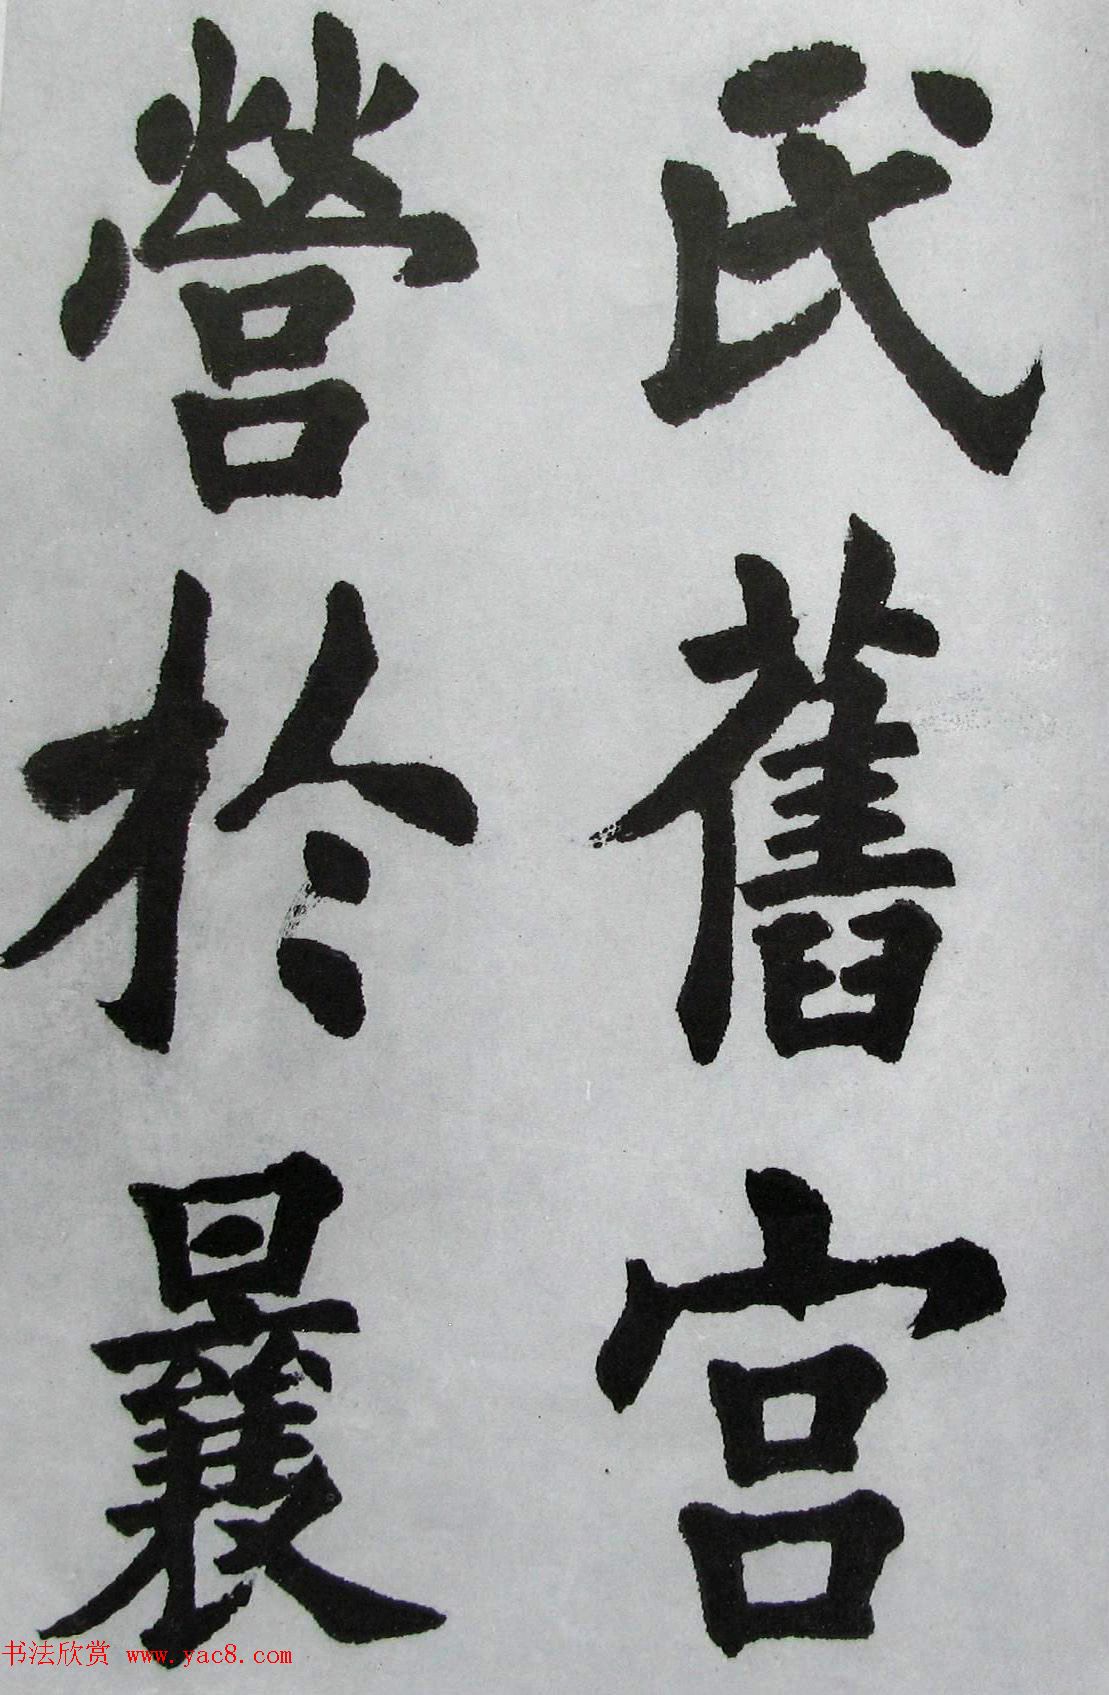 氏舊宮
營於曩
书法欣赏 www.yac8.com